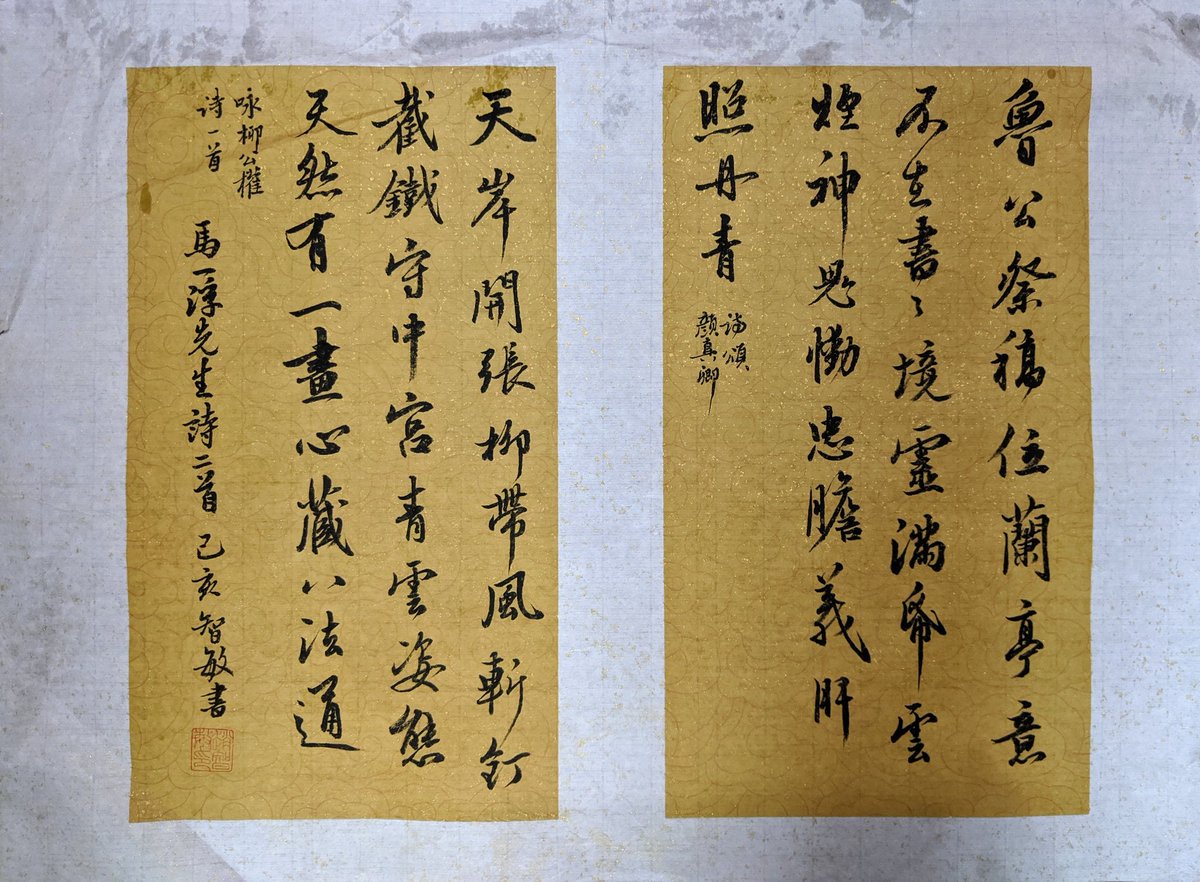 魯公祭稿位蘭亭意
不在書書境靈滿紙雲
煙神鬼慟忠膽義肝
照丹青
诗頌
顏真卿
天岸開張柳帶風斬釘
截鐵守中宮青雲姿態
天然有一畫心藏八法通
咏柳公權
诗一首
馬一浮先生詩二首 己亥 智敏書